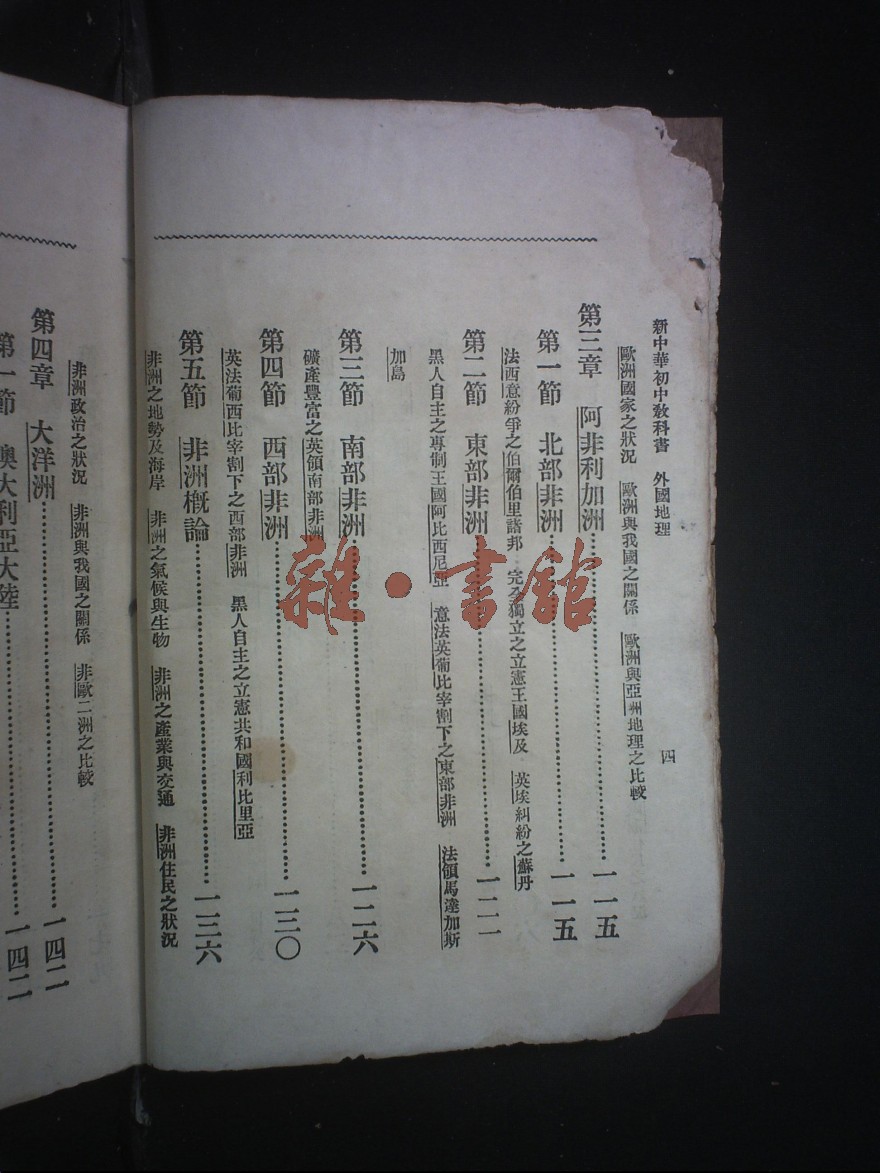 新中華初中敎科書　外國地理
四
歐洲國家之狀況　歐洲與我國之關係　歐洲與亞洲地理之比較
第三章　阿非利加洲……一一五
第一節　北部非洲……一一五
法西意紛爭之伯爾伯里諸邦　完全獨立之立憲王國埃及　英埃糾紛之蘇丹
第二節　東部非洲……一二一
黑人自主之專制王國阿比西尼亞　意法英葡比宰割下之東部非洲　法領馬達加斯
加島
第三節　南部非洲……一二六
礦產豐富之英領南部非洲
第四節　西部非洲……一三〇
英法葡西比宰割下之西部非洲　黑人自主之立憲共和國利比里亞
第五節　非洲槪論……一三六
非洲之地勢及海岸　非洲之氣候與生物　非洲之產業與交通　非洲住民之狀況
非洲政治之狀況　非洲與我國之關係　非歐二洲之比較
第四章　大洋洲……一四二
第一節　澳大利亞大陸……一四二
雜·書館